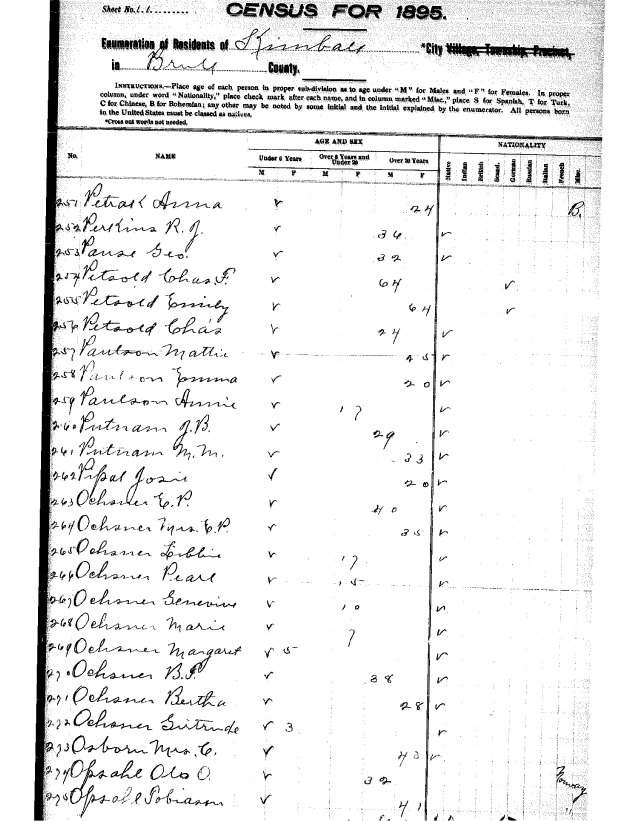 Sheet No. 11
CENSUS FOR 1895.
Enumeration of Residents of Kimball *City Village, Township, Precinct,
in Brule County.
INSTRUCTIONS.—Place age of each person in proper sub-division as to age under "M" for Males and "F" for Females. In proper
column, under word "Nationality," place check mark after each name, and in column marked "Misc.," place S for Spanish, T for Turk,
C for Chinese, B for Bohemian; any other may be noted by some initial and the initial explained by the enumerator. All persons born
in the United States must be classed as natives.
*Cross out words not needed.
AGE AND SEX NATIONALITY
No. NAME Under 6 Years Over 6 Years and Under 20 Over 20 Years Native Indian British Scand. German Russian Italian French Misc.
M F M F M F
251 Petrak Anna ✓ 24 B.
252 Perkins R. J. ✓ 36 ✓
253 Pause Geo. ✓ 32 ✓
254 Petsold Chas F. ✓ 64 ✓
255 Petsold Emily ✓ 64 ✓
256 Petsold Chas ✓ 24 ✓
257 Paulson Mattie ✓ ✓
258 Paulson Emma ✓ 20 ✓
259 Paulson Annie ✓ 17 ✓
260 Putnam J. B. ✓ 29 ✓
261 Putnam M. M. ✓ 33 ✓
262 Josie ✓ 20 ✓
263 Ochsner E. P. ✓ 40 ✓
264 Ochsner Mrs. E. P. ✓ 35 ✓
265 Ochsner Libbie ✓ 17 ✓
266 Ochsner Pearl ✓ 15 ✓
267 Ochsner Genevive ✓ 10 ✓
268 Ochsner Marie ✓ 7 ✓
269 Ochsner Margaret ✓ 5 ✓
270 Ochsner B. F. ✓ 38 ✓
271 Ochsner Bertha ✓ 28 ✓
272 Ochsner Gertrude ✓ 3 ✓
273 Osborn Mrs. C. ✓ ✓
274 Opsahl Ole O. ✓ 32 Norway
275 Opsahl Tobiason ✓ 41 "